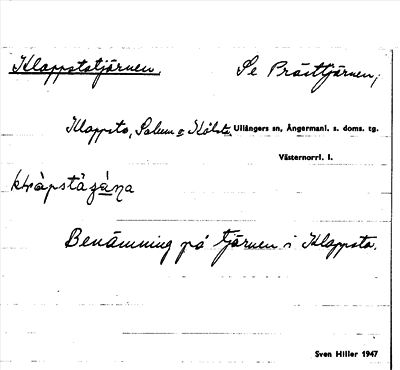 Klappstatjärnen. Se Prästtjärnen,
Klappsta, Salum o Skölsta, Ullångers sn, Ångermanl. s. doms. tg.
Västernorrl. l.
Benämning på tjärnen i Klappsta.
Sven Hiller 1947